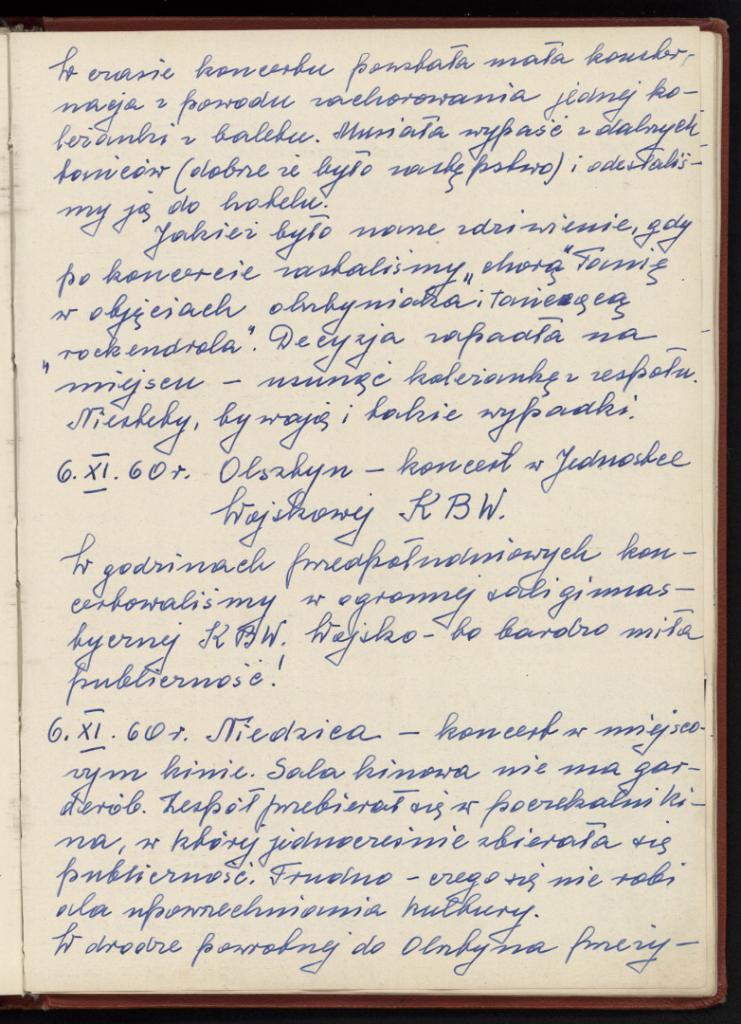 W czasie koncertu powstała mała konster-
nacja z powodu zachorowania jednej ko-
leżanki z baletu. Musiała wypaść z dalszych
tańców (dobrze że było zastępstwo) i odesłaliś-
my ją do hotelu.
Jakież było nasze zdziwienie, gdy
po koncercie zastaliśmy "chorą" Tanię
w objęciach olsztyniaka i tańczącą
"rockendrola". Decyzja zapadła na
miejscu – usunąć koleżankę z zespołu.
Niestety, bywają i takie wypadki.
6. XI. 60 r. Olsztyn – koncert w Jednostce
Wojskowej KBW.
W godzinach przedpołudniowych kon-
certowaliśmy w ogromnej sali gimnas-
tycznej KBW. Wojsko – to bardzo miła
publiczność!
6. XI. 60 r. Niedzica – koncert w miejsco-
wym kinie. Sala kinowa nie ma gar-
derób. Zespół przebierał się w poczekalni ki-
na, w której jednocześnie zbierała się
publiczność. Trudno – czego się nie robi
dla upowszechniania kultury.
W drodze powrotnej do Olsztyna przeży-